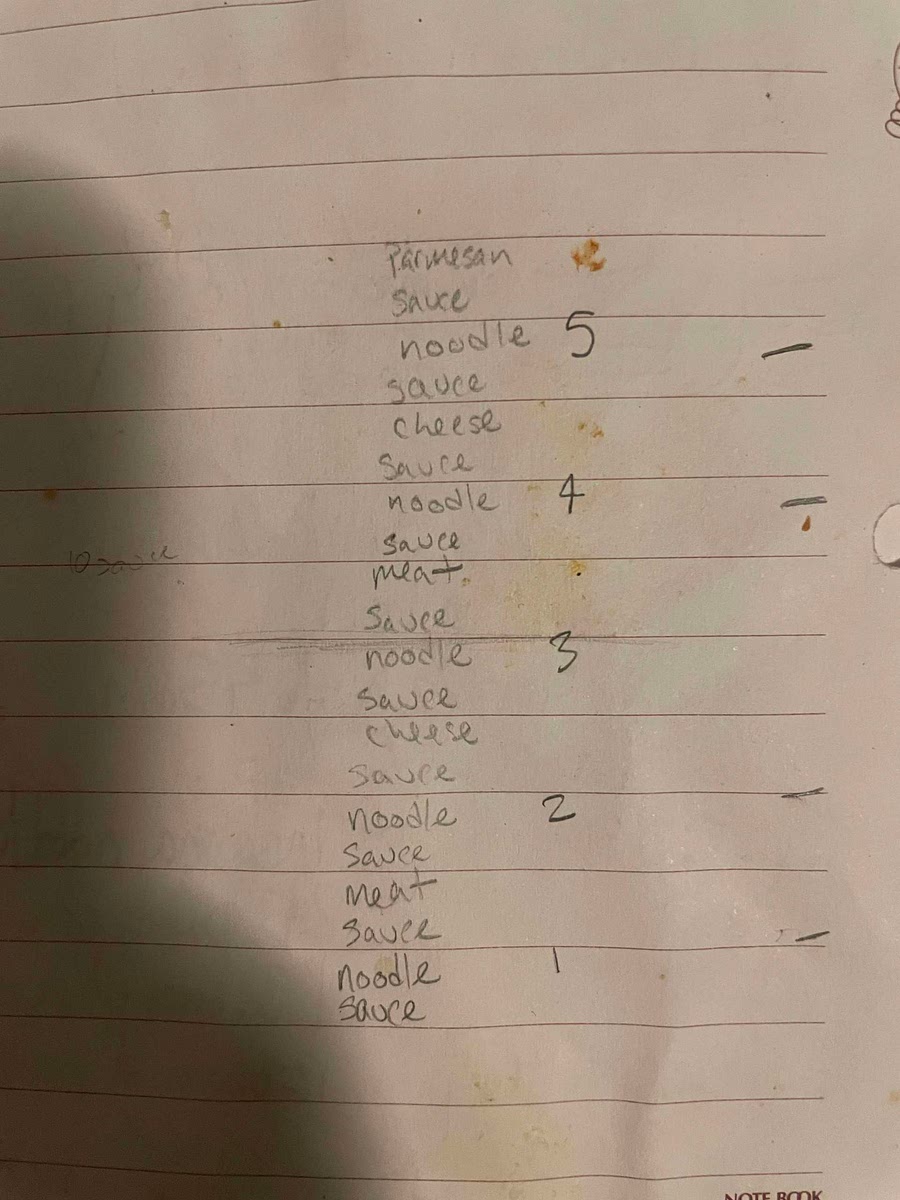 Parmesan
sauce
noodle 5
sauce
cheese
sauce
noodle 4
sauce
10 sauce
meat.
sauce
noodle 3
sauce
cheese
sauce
noodle 2
sauce
meat
sauce
noodle 1
sauce
NOTE BOOK